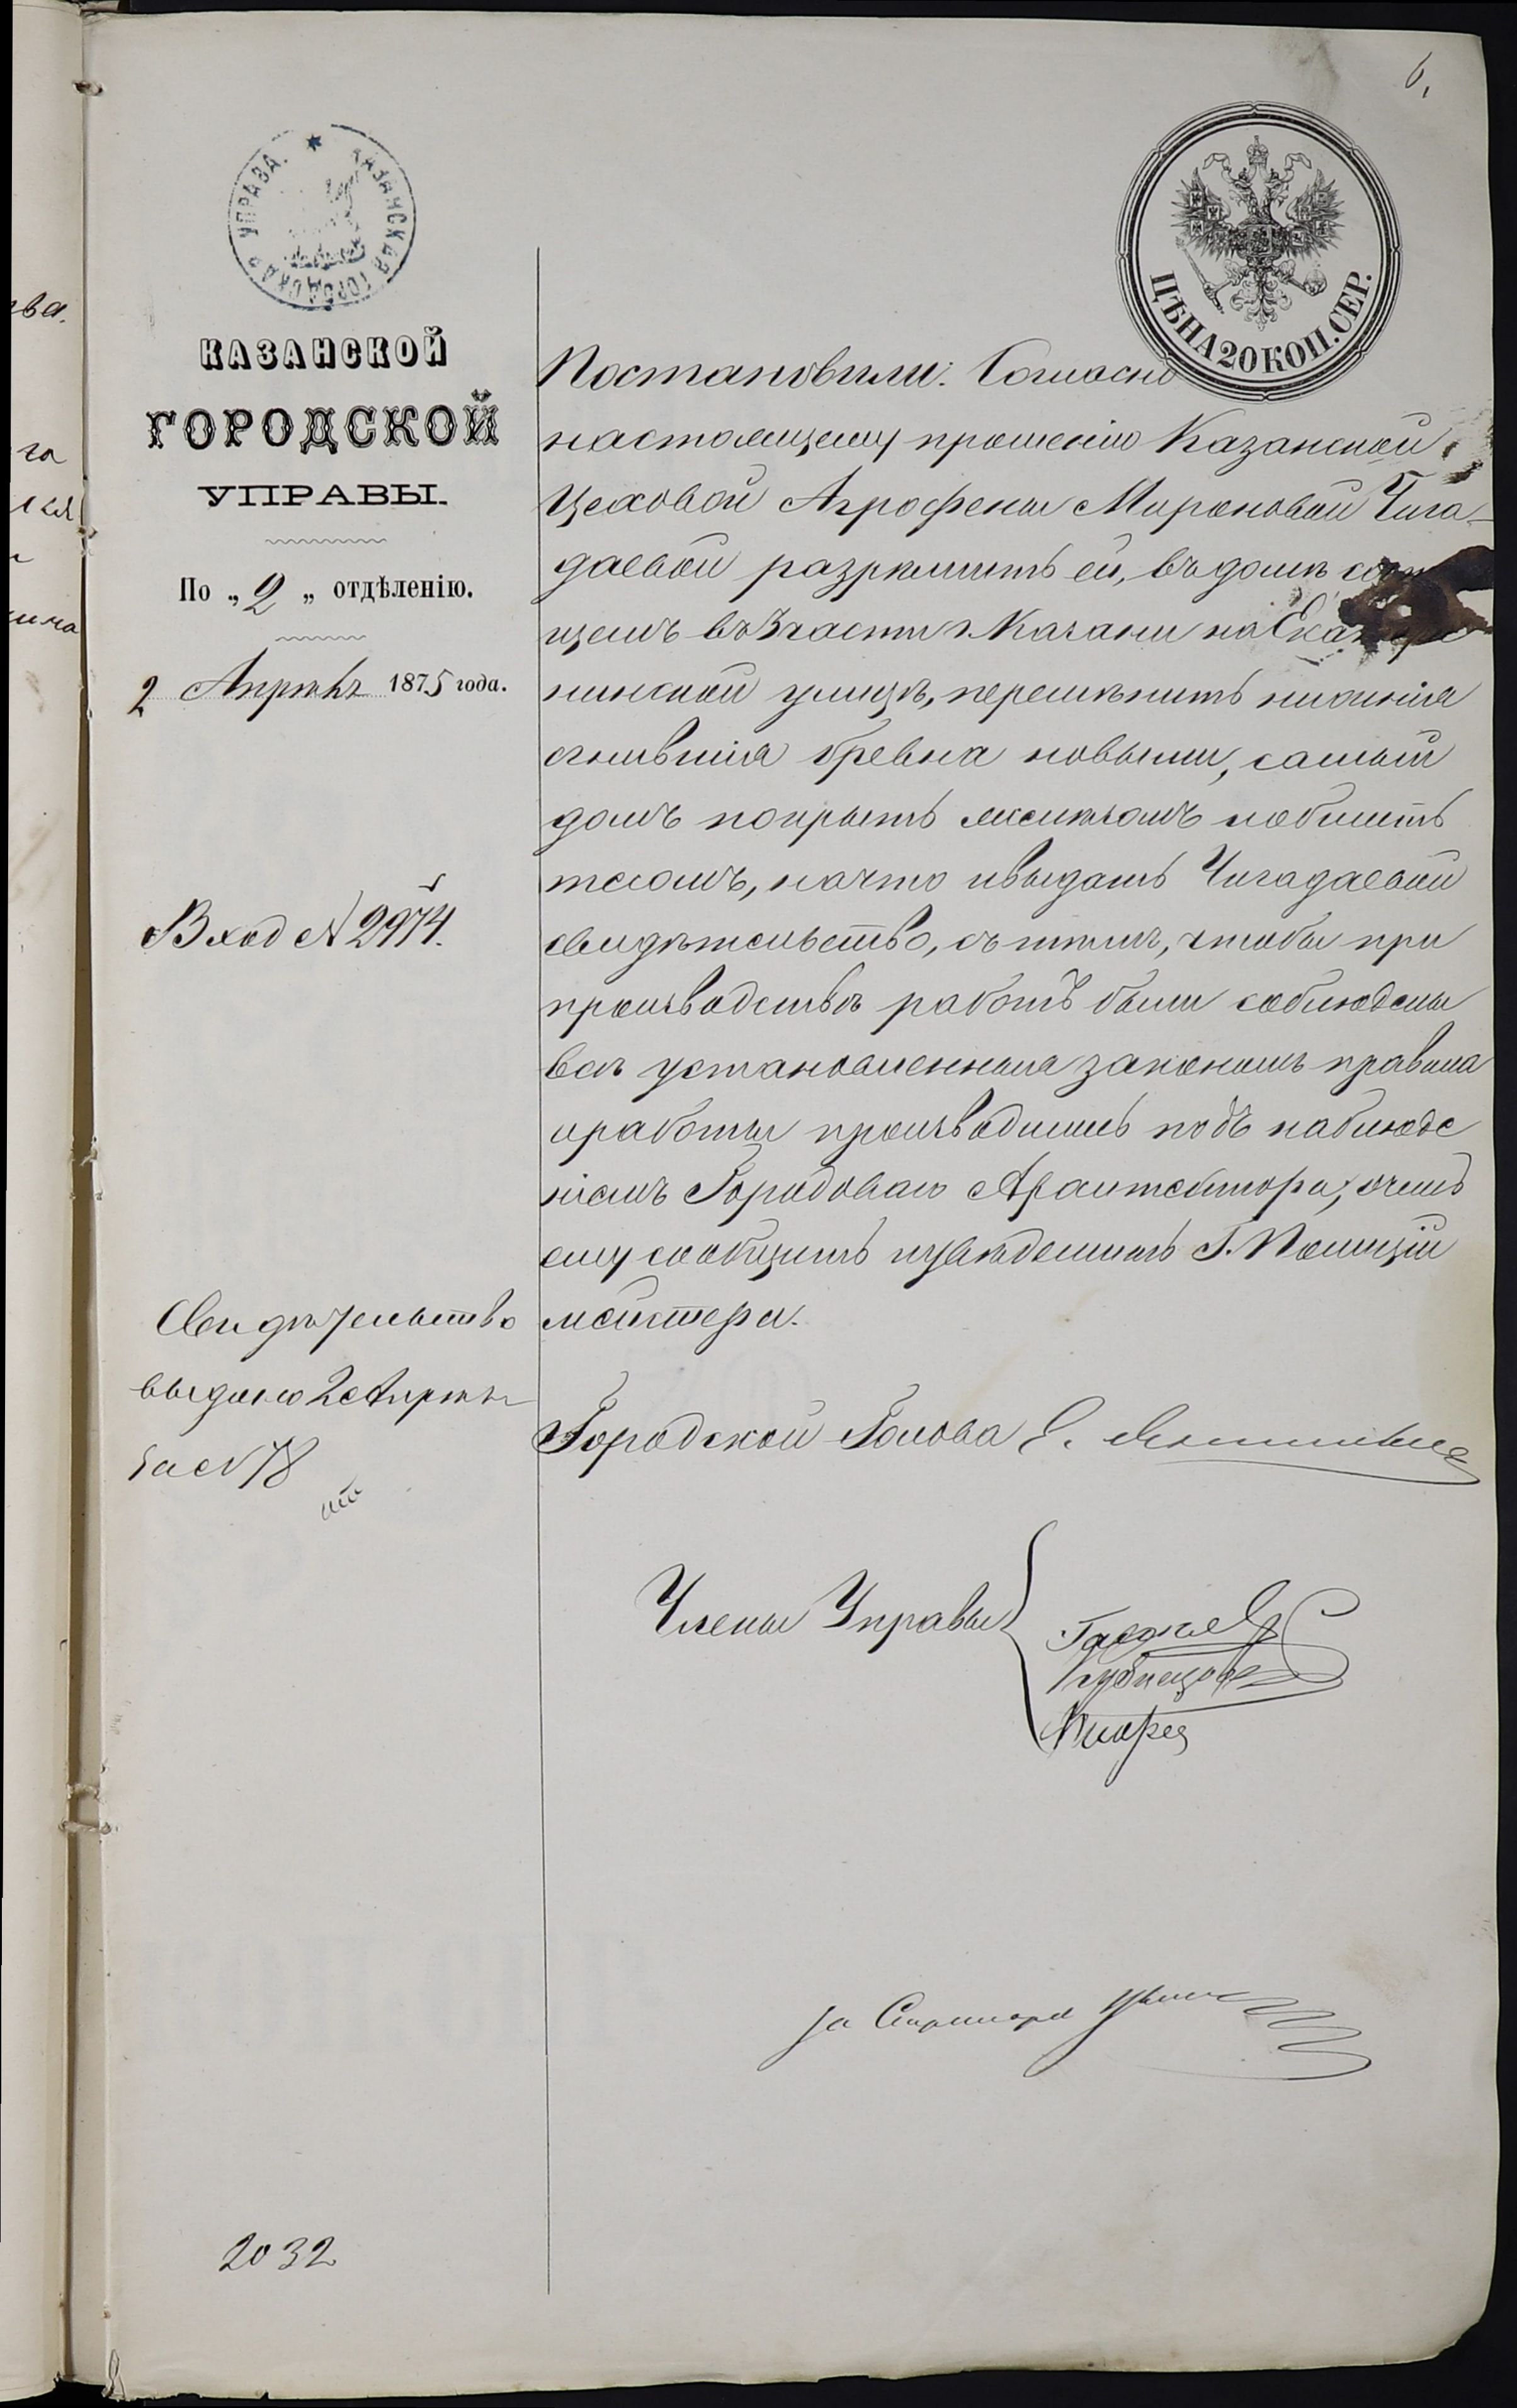 6.
КАЗАНСКАЯ ГОРОДСКАЯ УПРАВА.
ЦѢНА 20 КОП. СЕР.
КАЗАНСКОЙ
ГОРОДСКОЙ
УПРАВЫ.
По „2„ отдѣленію.
2 Апрѣль 1875 года.
Вход № 2974.
Свидѣтельство
выдано 2 Апрѣля
за № 78
2032
Постановили: Согласно
настоящему прошенію Казанской
Цеховой Агрофены Мироновой Чига-
даевой разрѣшить ей, въ домѣ
щемъ въ 3 части г. Казани на Екатери
нинской улицѣ, перемѣнить нижнія
сгнившія бревна новыми, самый
домъ покрыть желѣзомъ и обшить
тесомъ, на что и выдать Чигадаевой
свидѣтельство, съ тѣмъ, чтобы при
производствѣ работъ были соблюдены
всѣ установленныя закономъ правила
и работы производились подъ наблюде
ніемъ Городоваго Архитектора, о чемъ
ему сообщить и увѣдомить Г. Полиціи
мейстера.
Городской Голова Е.
Члены Управы
Кузнецовъ
За Секретаря